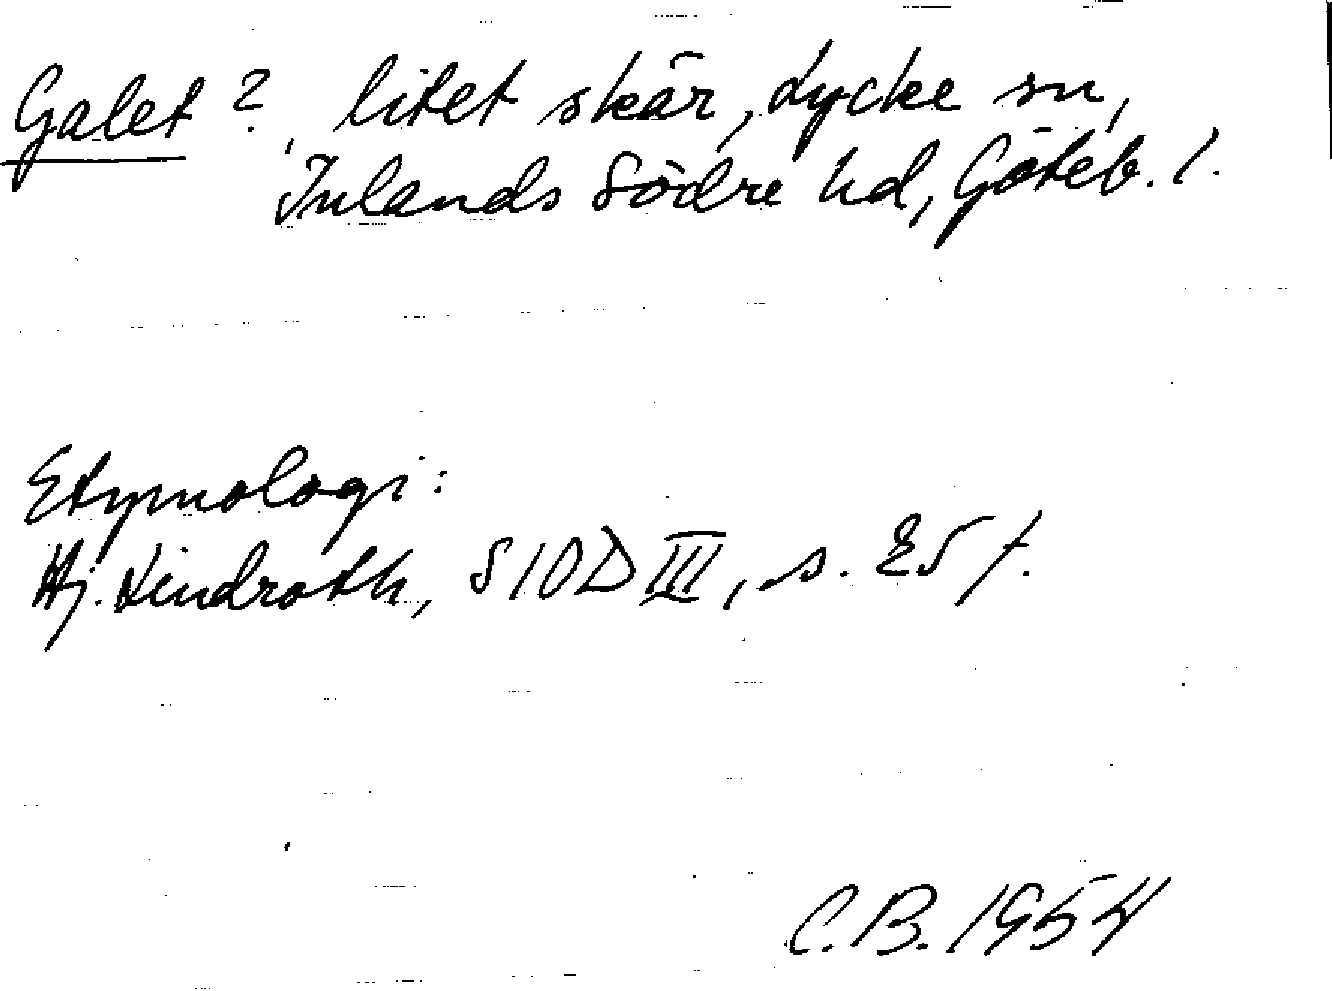 Galet?, litet skär, Lycke sn,
Inlands Södre hd, Göteb. l.
Etymologi:
Hj. Lindroth, SIOD III, s. 25 f.
C.B. 1954